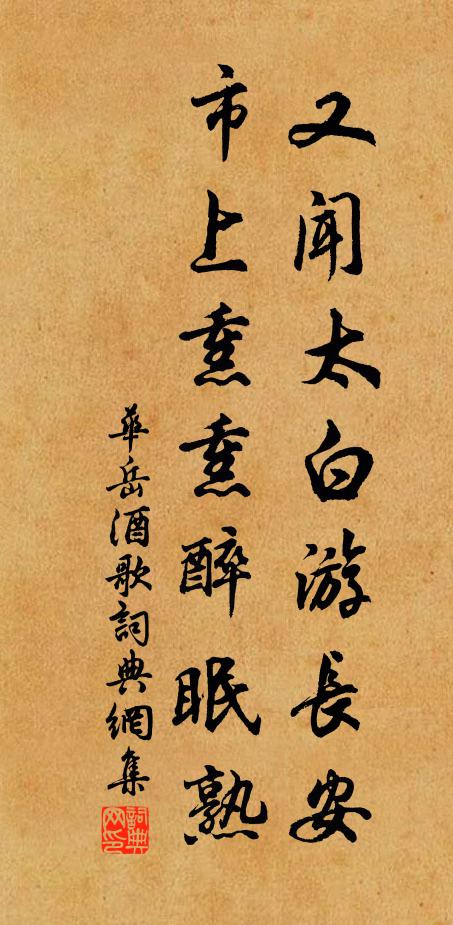 又闻太白游長安
市上熏熏醉眠熟
華岳酒歌詞典網集
詞典网印